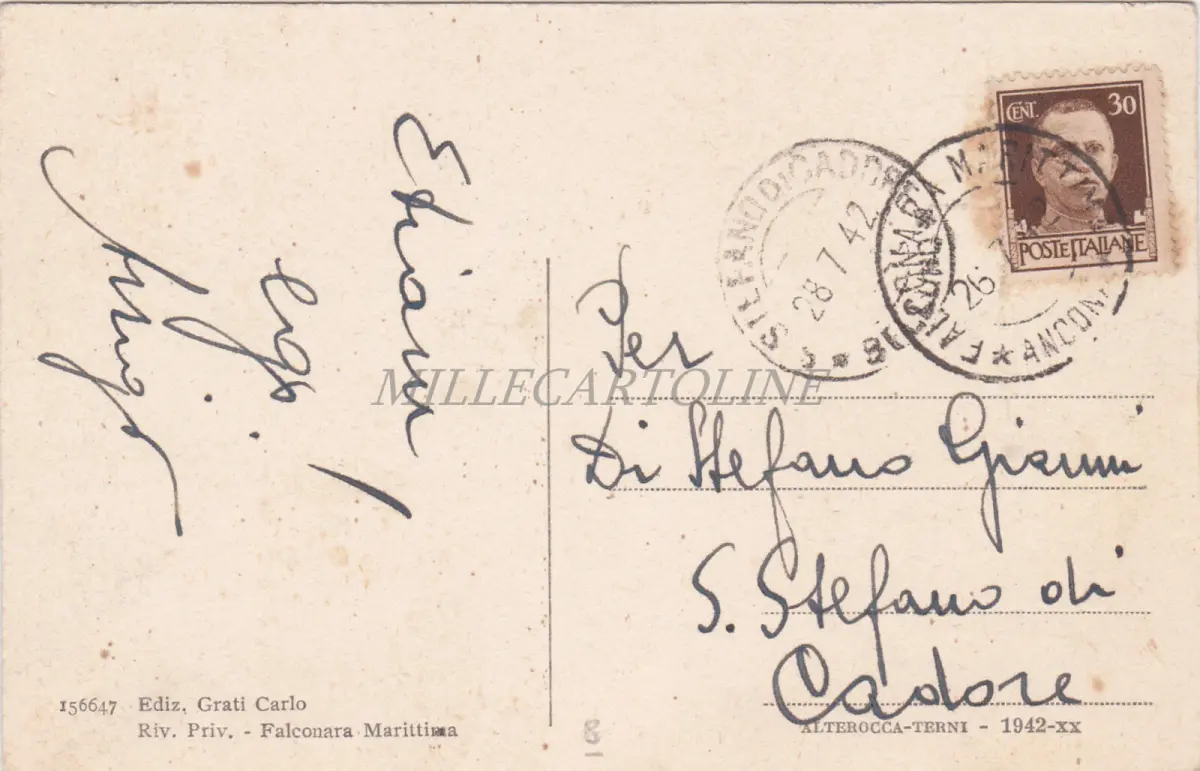 CENT. 30
POSTE ITALIANE
S. STEFANO DI CADORE * BELLUNO *
28 7 42
FALCONARA MARITTIMA * ANCONA
26
Per
Di Stefano Gianni
S. Stefano di
Cadore
MILLECARTOLINE
156647 Ediz. Grati Carlo
Riv. Priv. - Falconara Marittima
ALTEROCCA-TERNI - 1942-XX
8